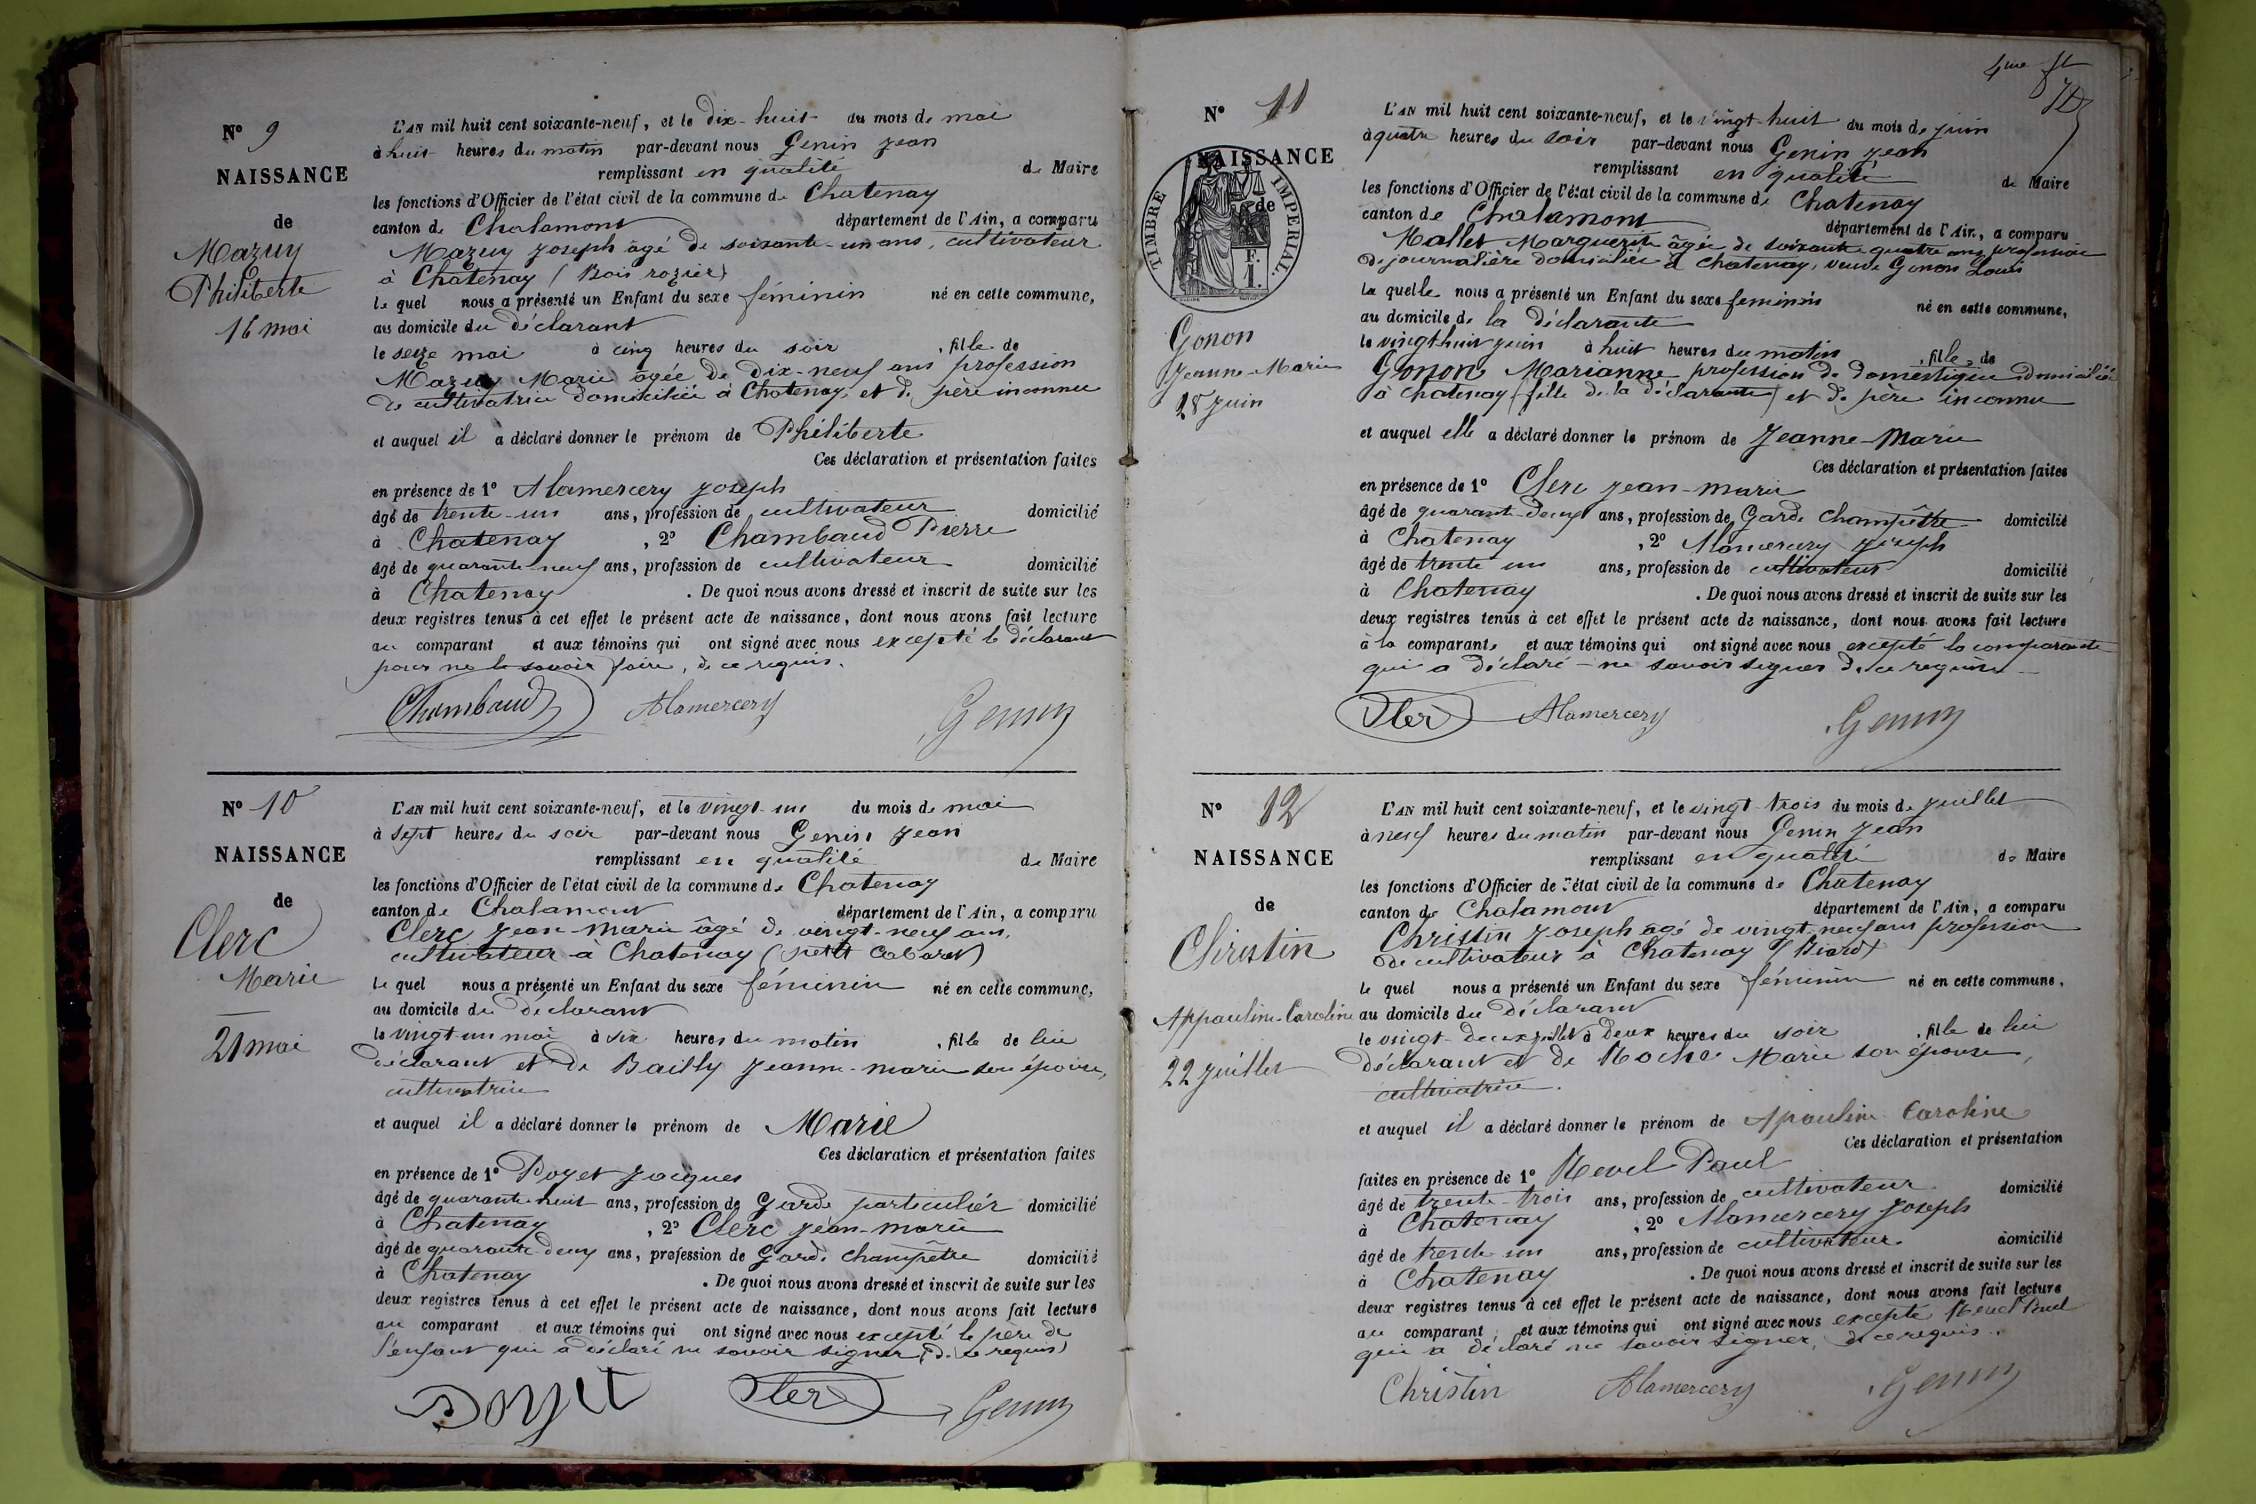 N° 9
NAISSANCE
de
Mazuy
Philiberte
16 mai
L'AN mil huit cent soixante-neuf, et le dix-huit du mois de mai
à huit heures du matin par-devant nous Genin Jean
remplissant en qualité de Maire
les fonctions d'Officier de l'état civil de la commune de Chatenay
canton de Chalamont département de l'Ain, a comparu
Mazuy Joseph âgé de soixante-un ans, cultivateur
à Chatenay (Bois rozier)
le quel nous a présenté un Enfant du sexe féminin né en cette commune,
au domicile du déclarant
le seize mai à cinq heures du soir, fille de
Mazuy Marie âgée de dix-neuf ans profession
de cultivatrice domiciliée à Chatenay, et de père inconnu
et auquel il a déclaré donner le prénom de Philiberte
Ces déclaration et présentation faites
en présence de 1° Alamercery Joseph
âgé de trente-un ans, profession de cultivateur domicilié
à Chatenay, 2° Chambaud Pierre
âgé de quarante-neuf ans, profession de cultivateur domicilié
à Chatenay. De quoi nous avons dressé et inscrit de suite sur les
deux registres tenus à cet effet le présent acte de naissance, dont nous avons fait lecture
au comparant et aux témoins qui ont signé avec nous excepté le déclarant
pour ne le savoir faire, de ce requis.
Chambaud Alamercery Genin
N° 10
NAISSANCE
de
Clerc
Marie
21 mai
L'AN mil huit cent soixante-neuf, et le vingt-un du mois de mai
à sept heures du soir par-devant nous Genin Jean
remplissant en qualité de Maire
les fonctions d'Officier de l'état civil de la commune de Chatenay
canton de Chalamont département de l'Ain, a comparu
Clerc Jean-Marie âgé de vingt-neuf ans,
cultivateur à Chatenay (petit Cabaret)
le quel nous a présenté un Enfant du sexe féminin né en cette commune,
au domicile du déclarant
le vingt-un mai à six heures du matin, fille de lui
déclarant et de Bailly Jeanne-Marie son épouse,
cultivatrice
et auquel il a déclaré donner le prénom de Marie
Ces déclaration et présentation faites
en présence de 1° Poyet Jacques
âgé de quarante-huit ans, profession de Garde particulier domicilié
à Chatenay, 2° Clerc Jean-Marie
âgé de quarante-deux ans, profession de Garde champêtre domicilié
à Chatenay. De quoi nous avons dressé et inscrit de suite sur les
deux registres tenus à cet effet le présent acte de naissance, dont nous avons fait lecture
au comparant et aux témoins qui ont signé avec nous excepté le père de
l'enfant qui a déclaré ne savoir signer, (de ce requis)
Poyet Clerc Genin
4me ft
N° 11
NAISSANCE
de
TIMBRE IMPERIAL.
1 F.
Gonon
Jeanne-Marie
28 juin
L'AN mil huit cent soixante-neuf, et le vingt-huit du mois de juin
à quatre heures du soir par-devant nous Genin Jean
remplissant en qualité de Maire
les fonctions d'Officier de l'état civil de la commune de Chatenay
canton de Chalamont département de l'Ain, a comparu
Mallet Marguerite âgée de soixante quatre ans, profession
de journalière domiciliée à Chatenay, veuve Gonon Louis
la quelle nous a présenté un Enfant du sexe feminin né en cette commune,
au domicile de la déclarante
le vingt-huit juin à huit heures du matin, fille de
Gonon Marianne profession de domestique domiciliée
à Chatenay (fille de la déclarante) et de père inconnu
et auquel elle a déclaré donner le prénom de Jeanne-Marie
Ces déclaration et présentation faites
en présence de 1° Clerc Jean-Marie
âgé de quarante-deux ans, profession de Garde champêtre domicilié
à Chatenay, 2° Alamercery Joseph
âgé de trente un ans, profession de cultivateur domicilié
à Chatenay. De quoi nous avons dressé et inscrit de suite sur les
deux registres tenus à cet effet le présent acte de naissance, dont nous avons fait lecture
à la comparante et aux témoins qui ont signé avec nous excepté la comparante
qui a déclaré ne savoir signer de ce requise
Clerc Alamercery Genin
N° 12
NAISSANCE
de
Christin
Appauline-Caroline
22 juillet
L'AN mil huit cent soixante-neuf, et le vingt-trois du mois de juillet
à neuf heures du matin par-devant nous Genin Jean
remplissant en qualité de Maire
les fonctions d'Officier de l'état civil de la commune de Chatenay
canton de Chalamont département de l'Ain, a comparu
Christin Joseph âgé de vingt-neuf ans profession
de cultivateur à Chatenay (Biard)
le quel nous a présenté un Enfant du sexe féminin né en cette commune,
au domicile du déclarant
le vingt-deux juillet à deux heures du soir, fille de lui
déclarant et de Roche Marie son épouse,
cultivatrice.
et auquel il a déclaré donner le prénom de Apauline Caroline
Ces déclaration et présentation
faites en présence de 1° Revel Paul
âgé de trente-trois ans, profession de cultivateur domicilié
à Chatenay, 2° Alamercery Joseph
âgé de trente un ans, profession de cultivateur domicilié
à Chatenay. De quoi nous avons dressé et inscrit de suite sur les
deux registres tenus à cet effet le présent acte de naissance, dont nous avons fait lecture
au comparant, et aux témoins qui ont signé avec nous excepté Revel Paul
qui a déclaré ne savoir signer, de ce requis.
Christin Alamercery Genin